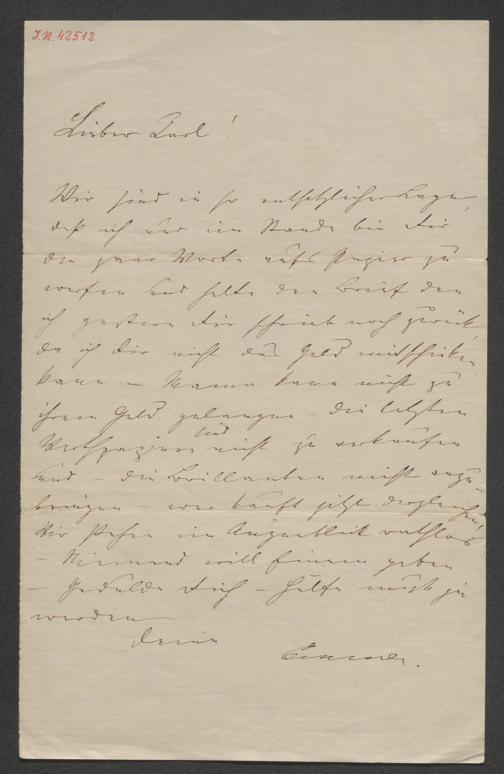 I.N. 42512
Lieber Carl!
Wir sind in so entsetzlicher Lage,
daß ich nur im Stande bin Dir
die paar Worte aufs Papier zu
werfen und halte den Brief den
ich gestern Dir schrieb noch zurück,
da ich Dir nicht das Geld mitschicken
kann – Mama kann nicht zu
ihrem Geld gelangen – die letzten
Werthpapiere sind nicht zu verkaufen
und – die Brillanten nicht anzu-
bringen – wer kauft jetzt dergleichen!
Wir stehen im Augenblick rathlos
– Niemand will einem geben
– Gedulde Dich – Hülfe muß ja
werden
Deine